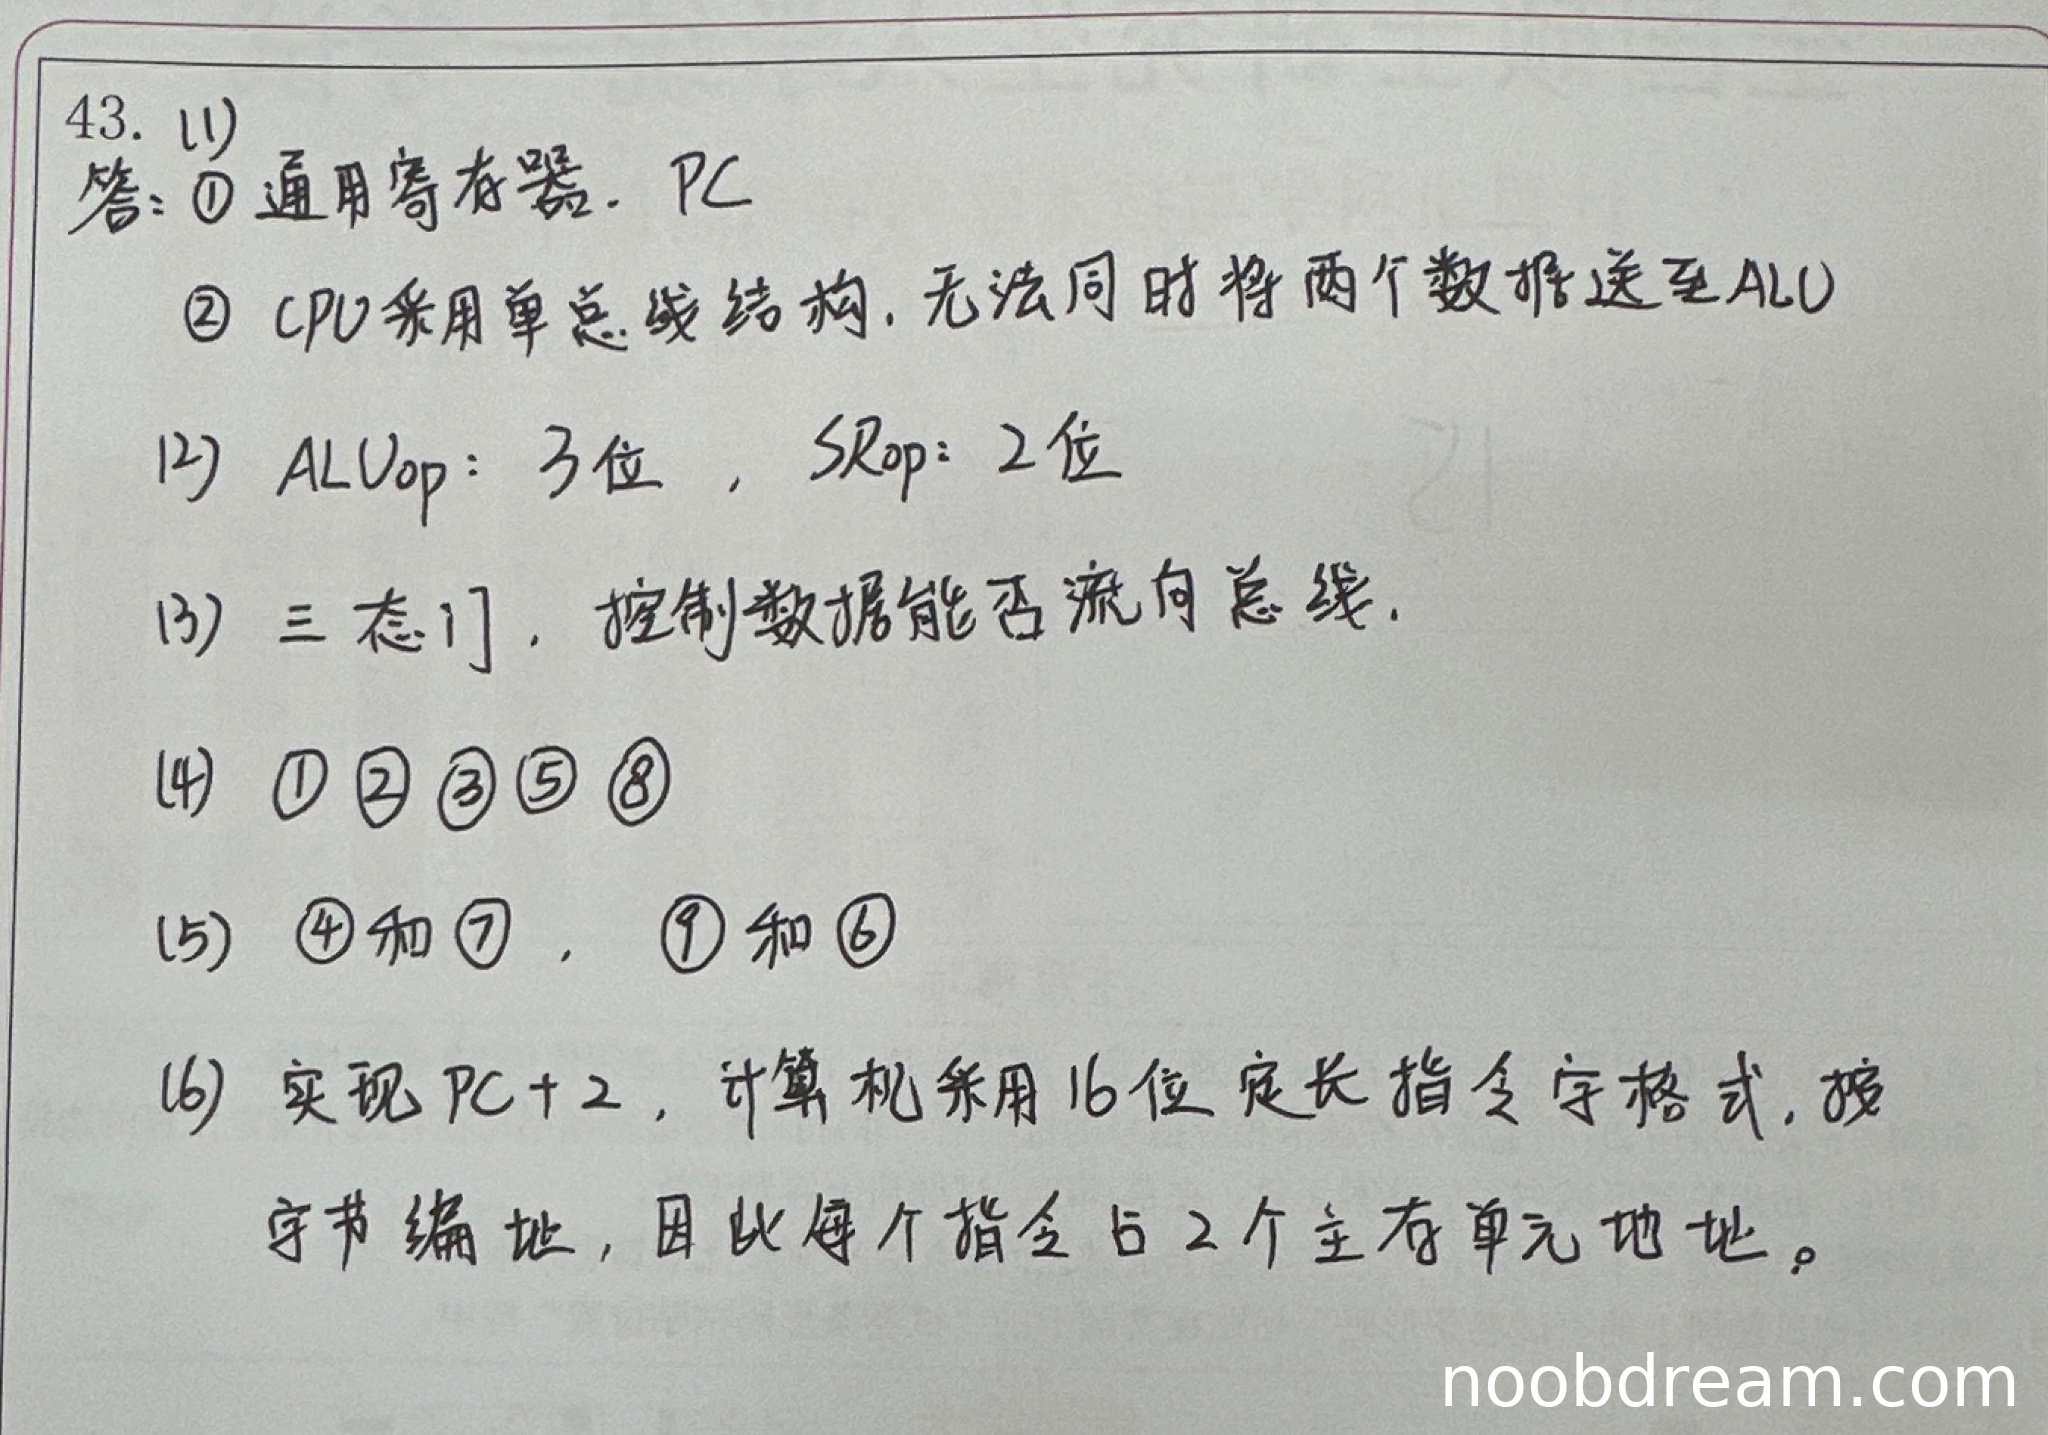 43. (1)
答：① 通用寄存器．PC
② CPU采用单总线结构，无法同时将两个数据送至ALU
(2) ALUop：3位，SRop：2位
(3) 三态门，控制数据能否流向总线．
(4) ① ② ③ ⑤ ⑧
(5) ④和⑦，⑨和⑥
(6) 实现PC+2，计算机采用16位定长指令字格式，按
字节编址，因此每个指令占2个主存单元地址。
noobdream.com